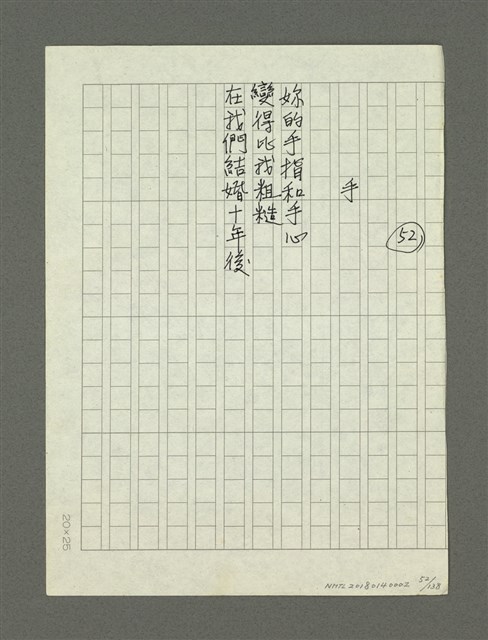 52
手
妳的手指和手心
變得比我粗糙
在我們結婚十年後
20×25
NMTL20180140002 52/138